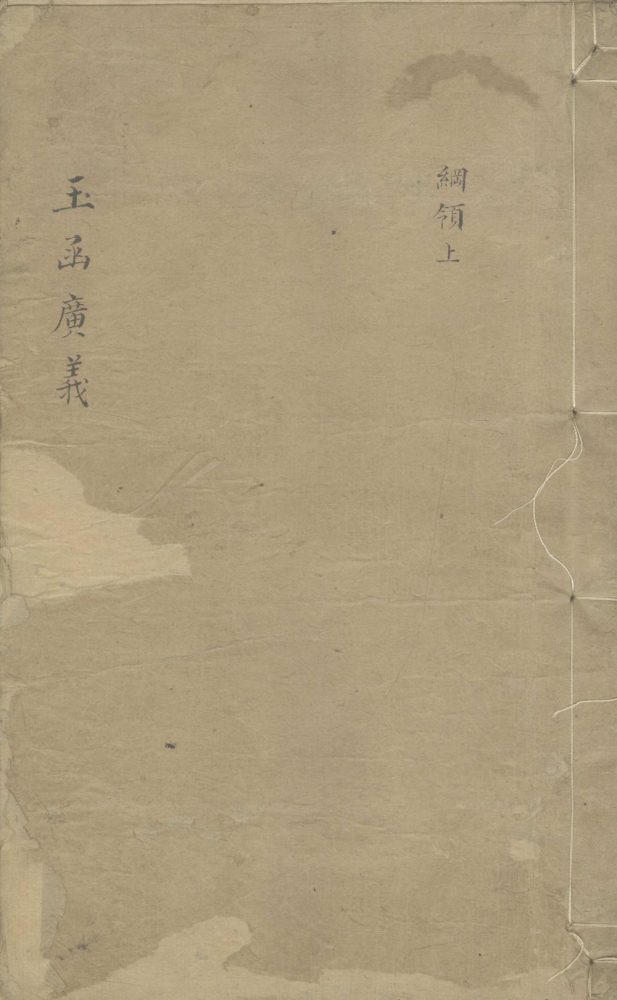 綱領上
玉函廣義